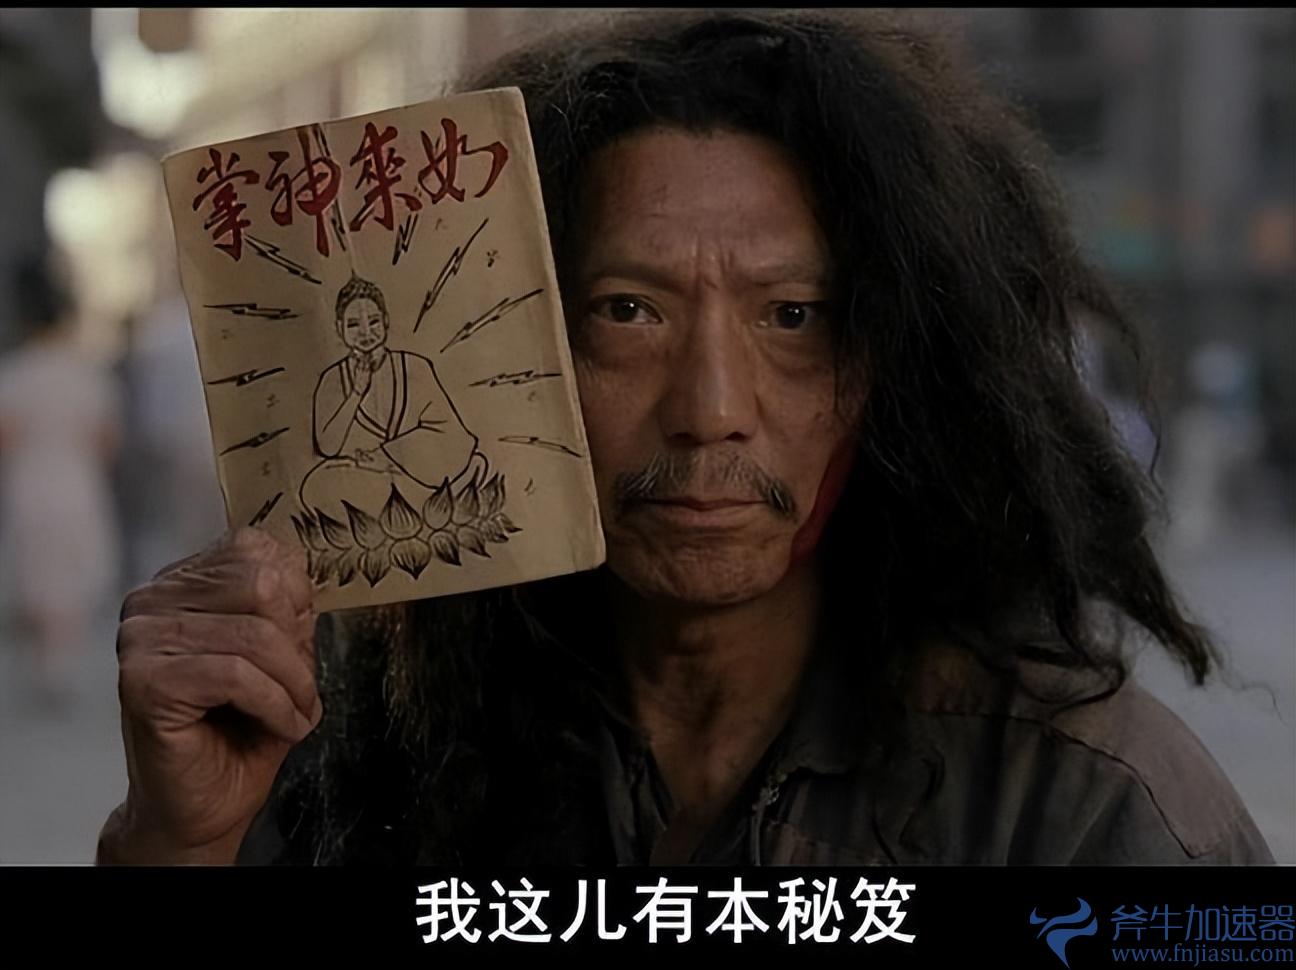 如来神掌
我这儿有本秘笈
斧牛加速器
www.fnjiasu.com